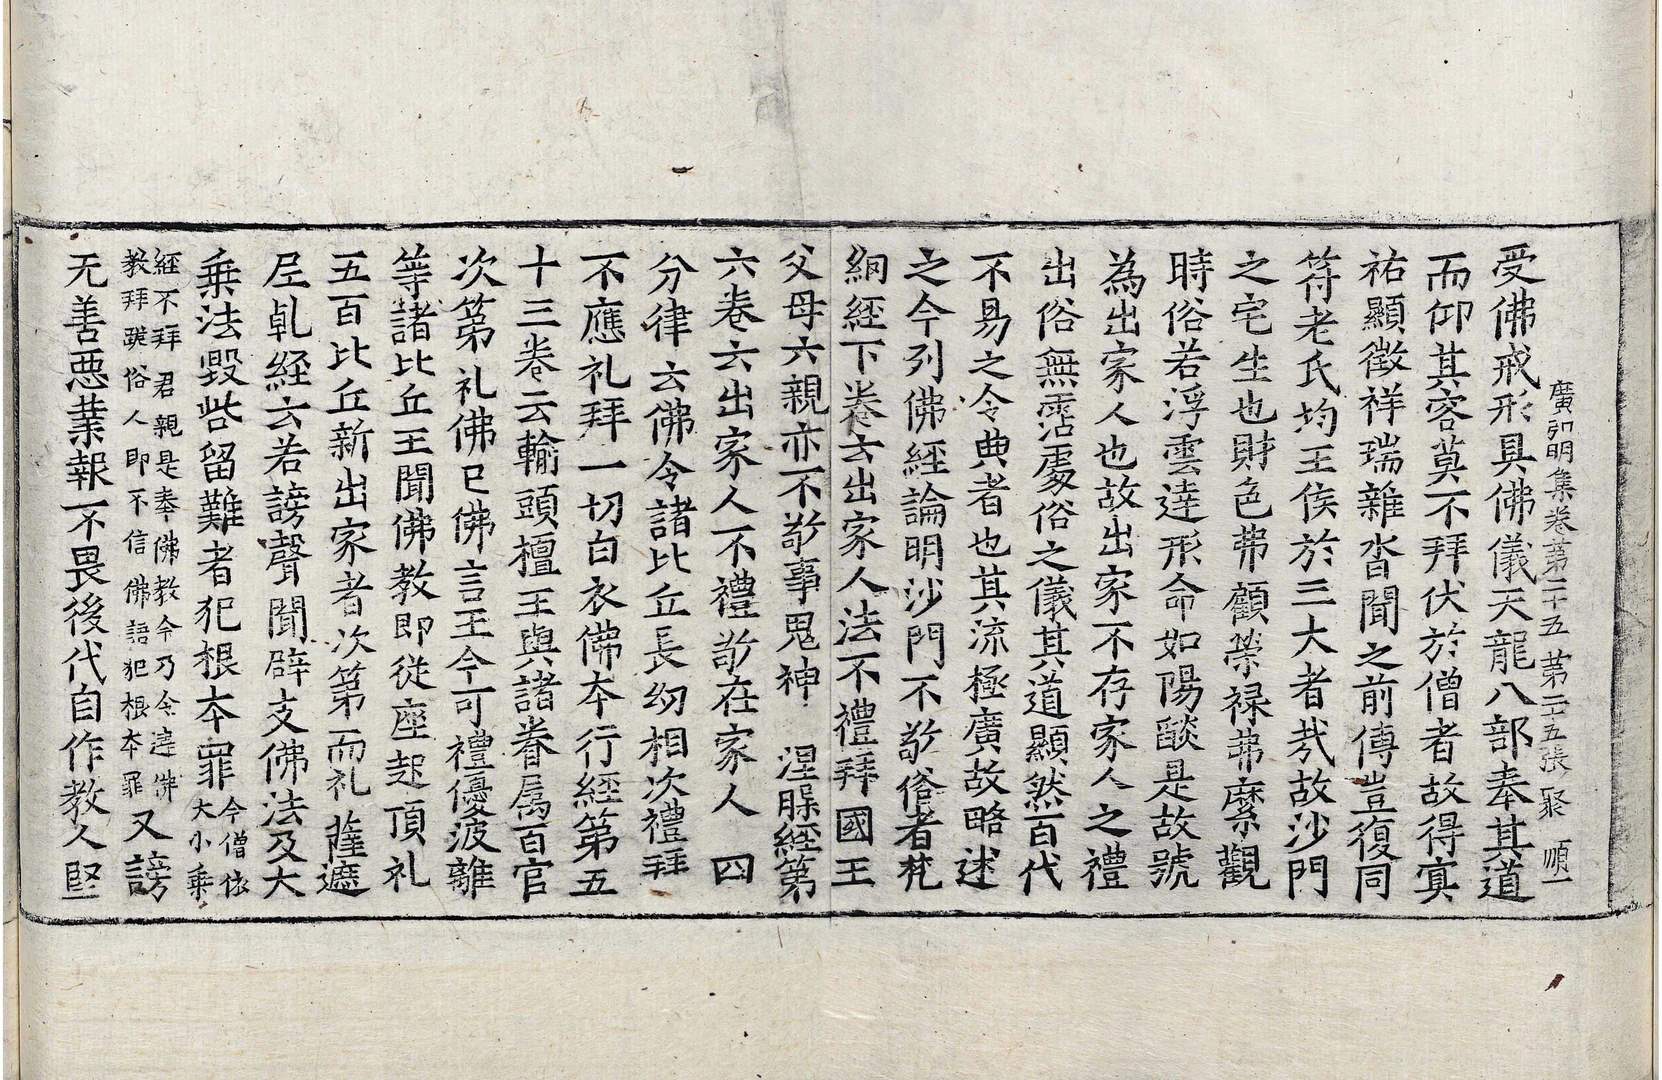 廣弘明集卷第二十五 第二五張 聚 順一
受佛戒形具佛儀天龍八部奉其道
而仰其容莫不拜伏於僧者故得㝠
祐顯徵祥瑞雜沓聞之前傳豈復同
符老氏均王侯於三大者㢤故沙門
之宅生也財色弗顧榮禄弗縻觀
時俗若浮雲達形命如陽燄是故號
為出家人也故出家不存家人之禮
出俗無霑處俗之儀其道顯然百代
不易之令典者也其流極廣故略述
之今列佛經論明沙門不敬俗者梵
綱經下卷云出家人法不禮拜國王
父母六親亦不敬事鬼神 涅槃經第
六卷云出家人不禮敬在家人 四
分律云佛令諸比丘長幼相次禮拜
不應礼拜一切白衣佛本行經第五
十三卷云輸頭檀王與諸眷属百官
次第礼佛已佛言王今可禮優波離
等諸比丘王聞佛教即從座起頂礼
五百比丘新出家者次第而礼 薩遮
尼乹經云若謗聲聞辟支佛法及大
乗法毁呰留難者犯根本罪今僧依大小乗
經不拜君親是奉佛教今乃令違佛教拜跪俗人即不信佛語犯根本罪又謗
无善惡業報不畏後代自作教人堅